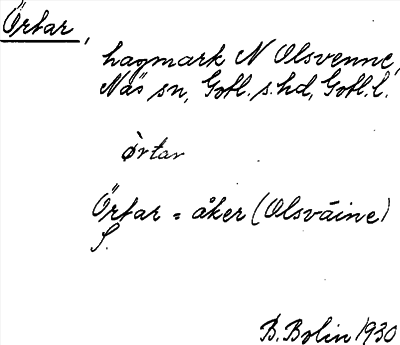 Örtar,
hagmark N Olsvenne,
Näs sn, Gotl. s. hd, Gotl. l.
òrtar
Örtar = åker (Olsväine)
S.
B. Bolin 1930